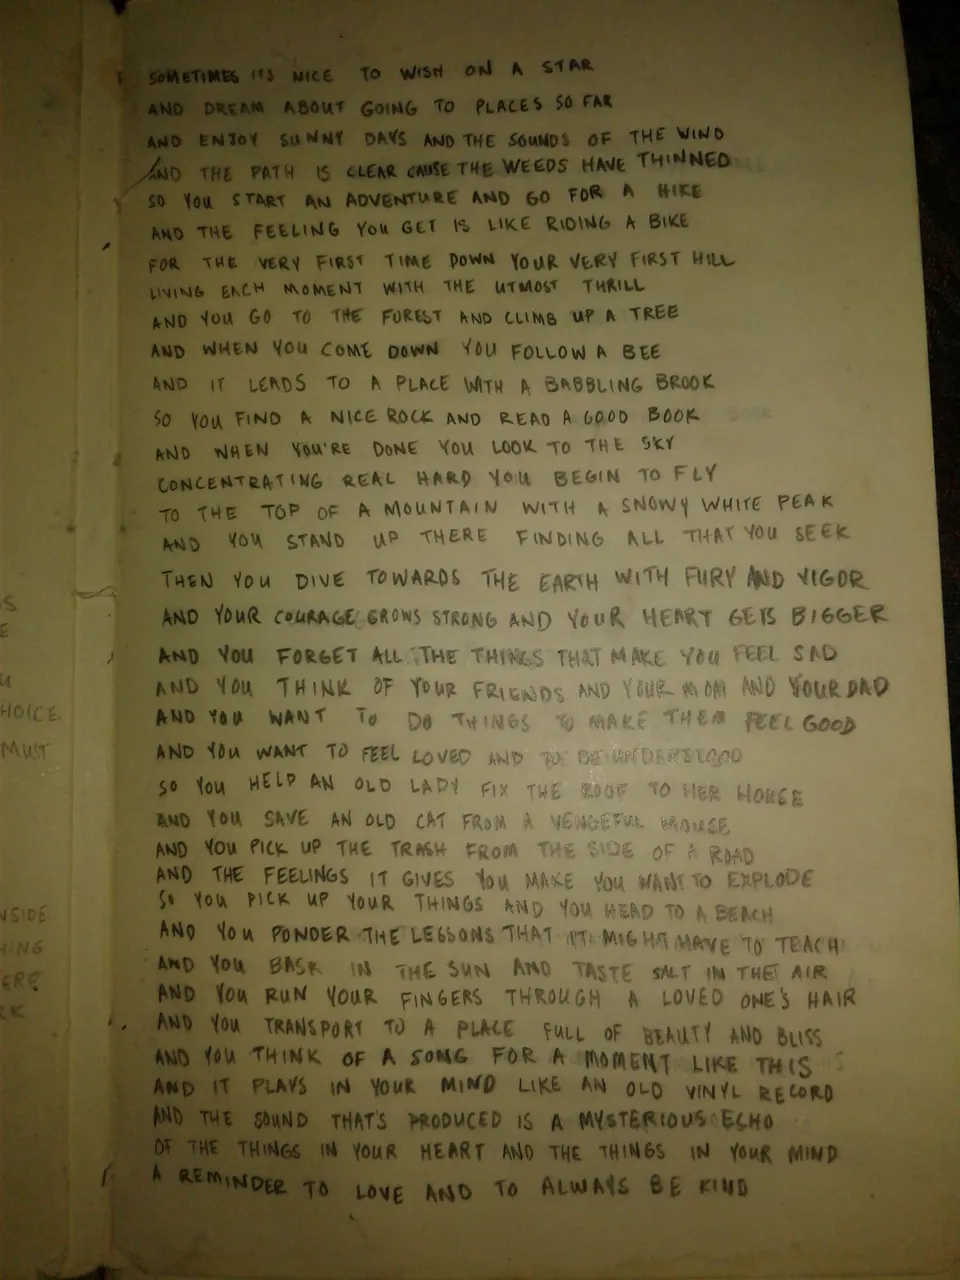 SOMETIMES ITS NICE TO WISH ON A STAR
AND DREAM ABOUT GOING TO PLACES SO FAR
AND ENJOY SUNNY DAYS AND THE SOUNDS OF THE WIND
AND THE PATH IS CLEAR CAUSE THE WEEDS HAVE THINNED
SO YOU START AN ADVENTURE AND GO FOR A HIKE
AND THE FEELING YOU GET IS LIKE RIDING A BIKE
FOR THE VERY FIRST TIME DOWN YOUR VERY FIRST HILL
LIVING EACH MOMENT WITH THE UTMOST THRILL
AND YOU GO TO THE FOREST AND CLIMB UP A TREE
AND WHEN YOU COME DOWN YOU FOLLOW A BEE
AND IT LEADS TO A PLACE WITH A BABBLING BROOK
SO YOU FIND A NICE ROCK AND READ A GOOD BOOK
AND WHEN YOU'RE DONE YOU LOOK TO THE SKY
CONCENTRATING REAL HARD YOU BEGIN TO FLY
TO THE TOP OF A MOUNTAIN WITH A SNOWY WHITE PEAK
AND YOU STAND UP THERE FINDING ALL THAT YOU SEEK
THEN YOU DIVE TOWARDS THE EARTH WITH FURY AND VIGOR
AND YOUR COURAGE GROWS STRONG AND YOUR HEART GETS BIGGER
AND YOU FORGET ALL THE THINGS THAT MAKE YOU FEEL SAD
AND YOU THINK OF YOUR FRIENDS AND YOUR MOM AND YOUR DAD
AND YOU WANT TO DO THINGS TO MAKE THEM FEEL GOOD
AND YOU WANT TO FEEL LOVED AND TO BE UNDERSTOOD
SO YOU HELP AN OLD LADY FIX THE ROOF TO HER HOUSE
AND YOU SAVE AN OLD CAT FROM A VENGEFUL MOUSE
AND YOU PICK UP THE TRASH FROM THE SIDE OF A ROAD
AND THE FEELINGS IT GIVES YOU MAKE YOU WANT TO EXPLODE
SO YOU PICK UP YOUR THINGS AND YOU HEAD TO A BEACH
AND YOU PONDER THE LESSONS THAT IT MIGHT HAVE TO TEACH
AND YOU BASK IN THE SUN AND TASTE SALT IN THE AIR
AND YOU RUN YOUR FINGERS THROUGH A LOVED ONE'S HAIR
AND YOU TRANSPORT TO A PLACE FULL OF BEAUTY AND BLISS
AND YOU THINK OF A SONG FOR A MOMENT LIKE THIS
AND IT PLAYS IN YOUR MIND LIKE AN OLD VINYL RECORD
AND THE SOUND THAT'S PRODUCED IS A MYSTERIOUS ECHO
OF THE THINGS IN YOUR HEART AND THE THINGS IN YOUR MIND
A REMINDER TO LOVE AND TO ALWAYS BE KIND